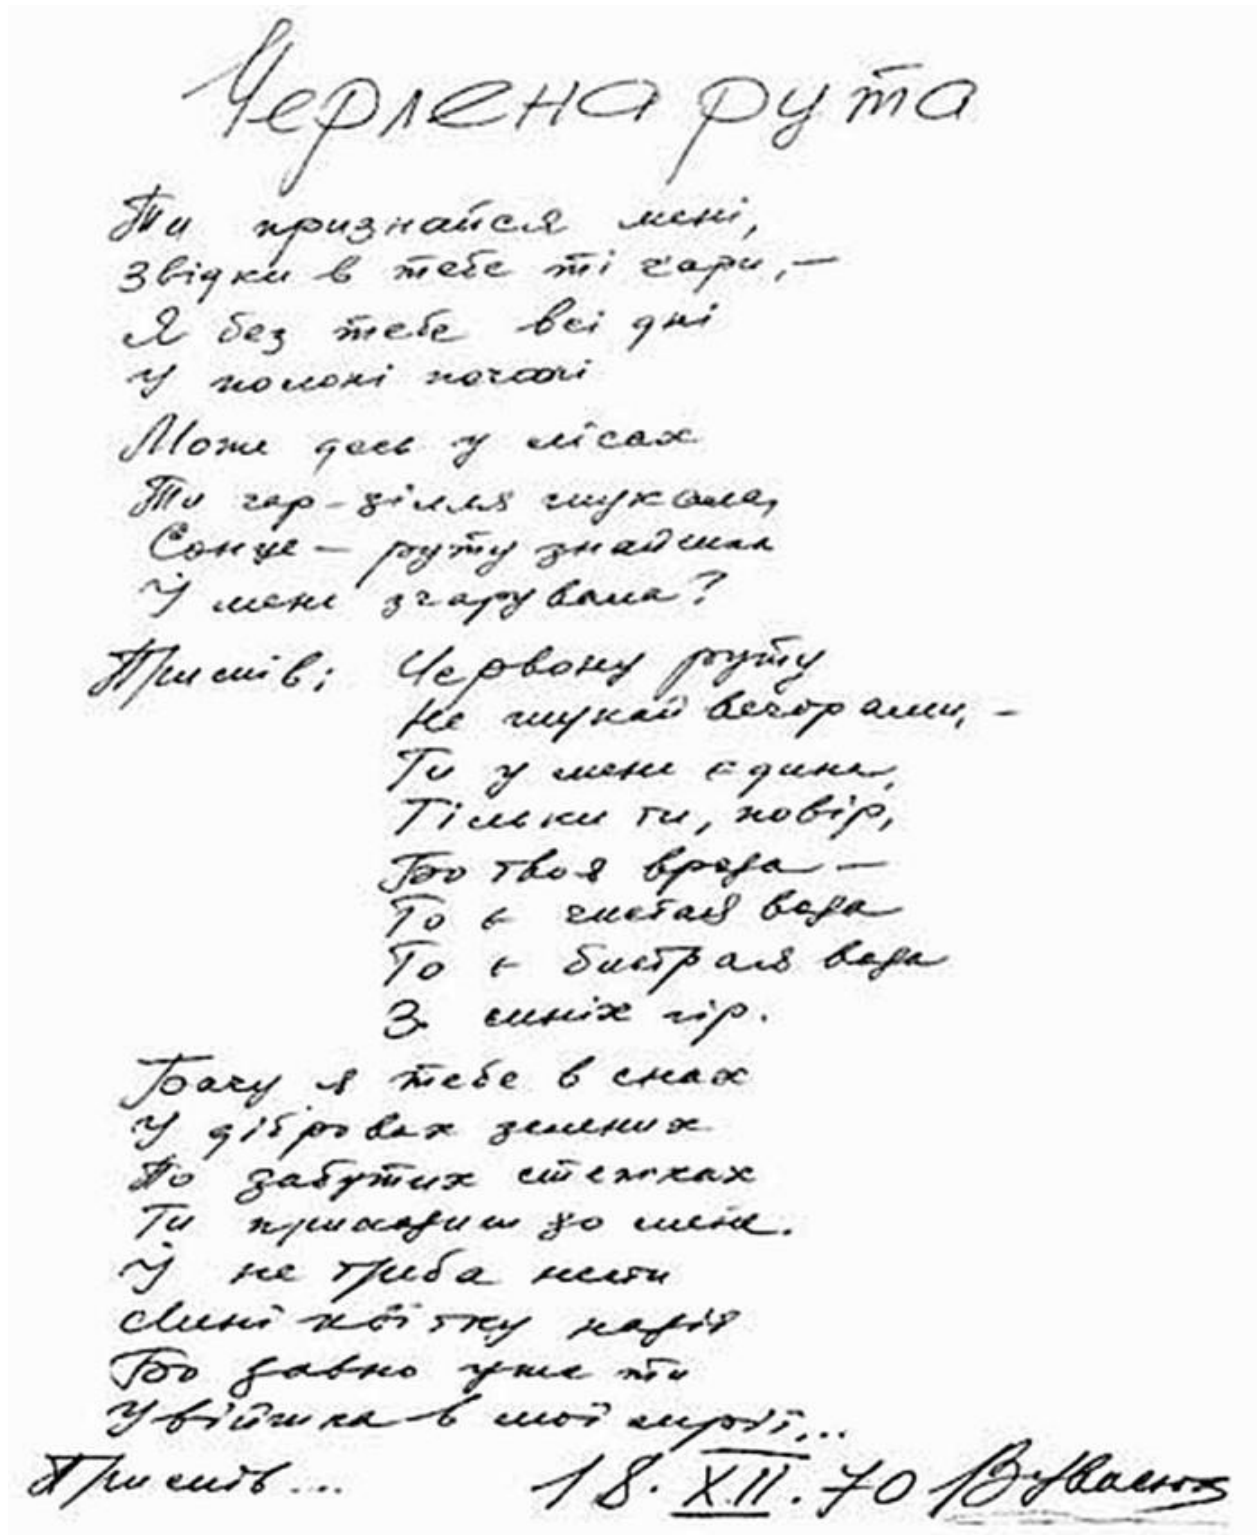 Черлена рута
Ти признайся мені,
Звідки в тебе ті чари, –
Я без тебе всі дні
У полоні печалі
Може десь у лісах
Ти чар-зілля шукала,
Сонце – руту знайшла
Й мене зчарувала?
Приспів: Червону руту
Не шукай вечорами, –
Ти у мене єдина,
Тільки ти, повір,
Бо твоя врода –
То є чистая вода
То є бистрая вода
З синіх гір.
Бачу я тебе в снах
У дібровах зелених
По забутих стежках
Ти приходиш до мене.
Й не треба нести
Мені квітку надій
Бо давно уже ти
Увійшла в мої мрії...
Приспів... 18. XII. 70 В. Івасюк